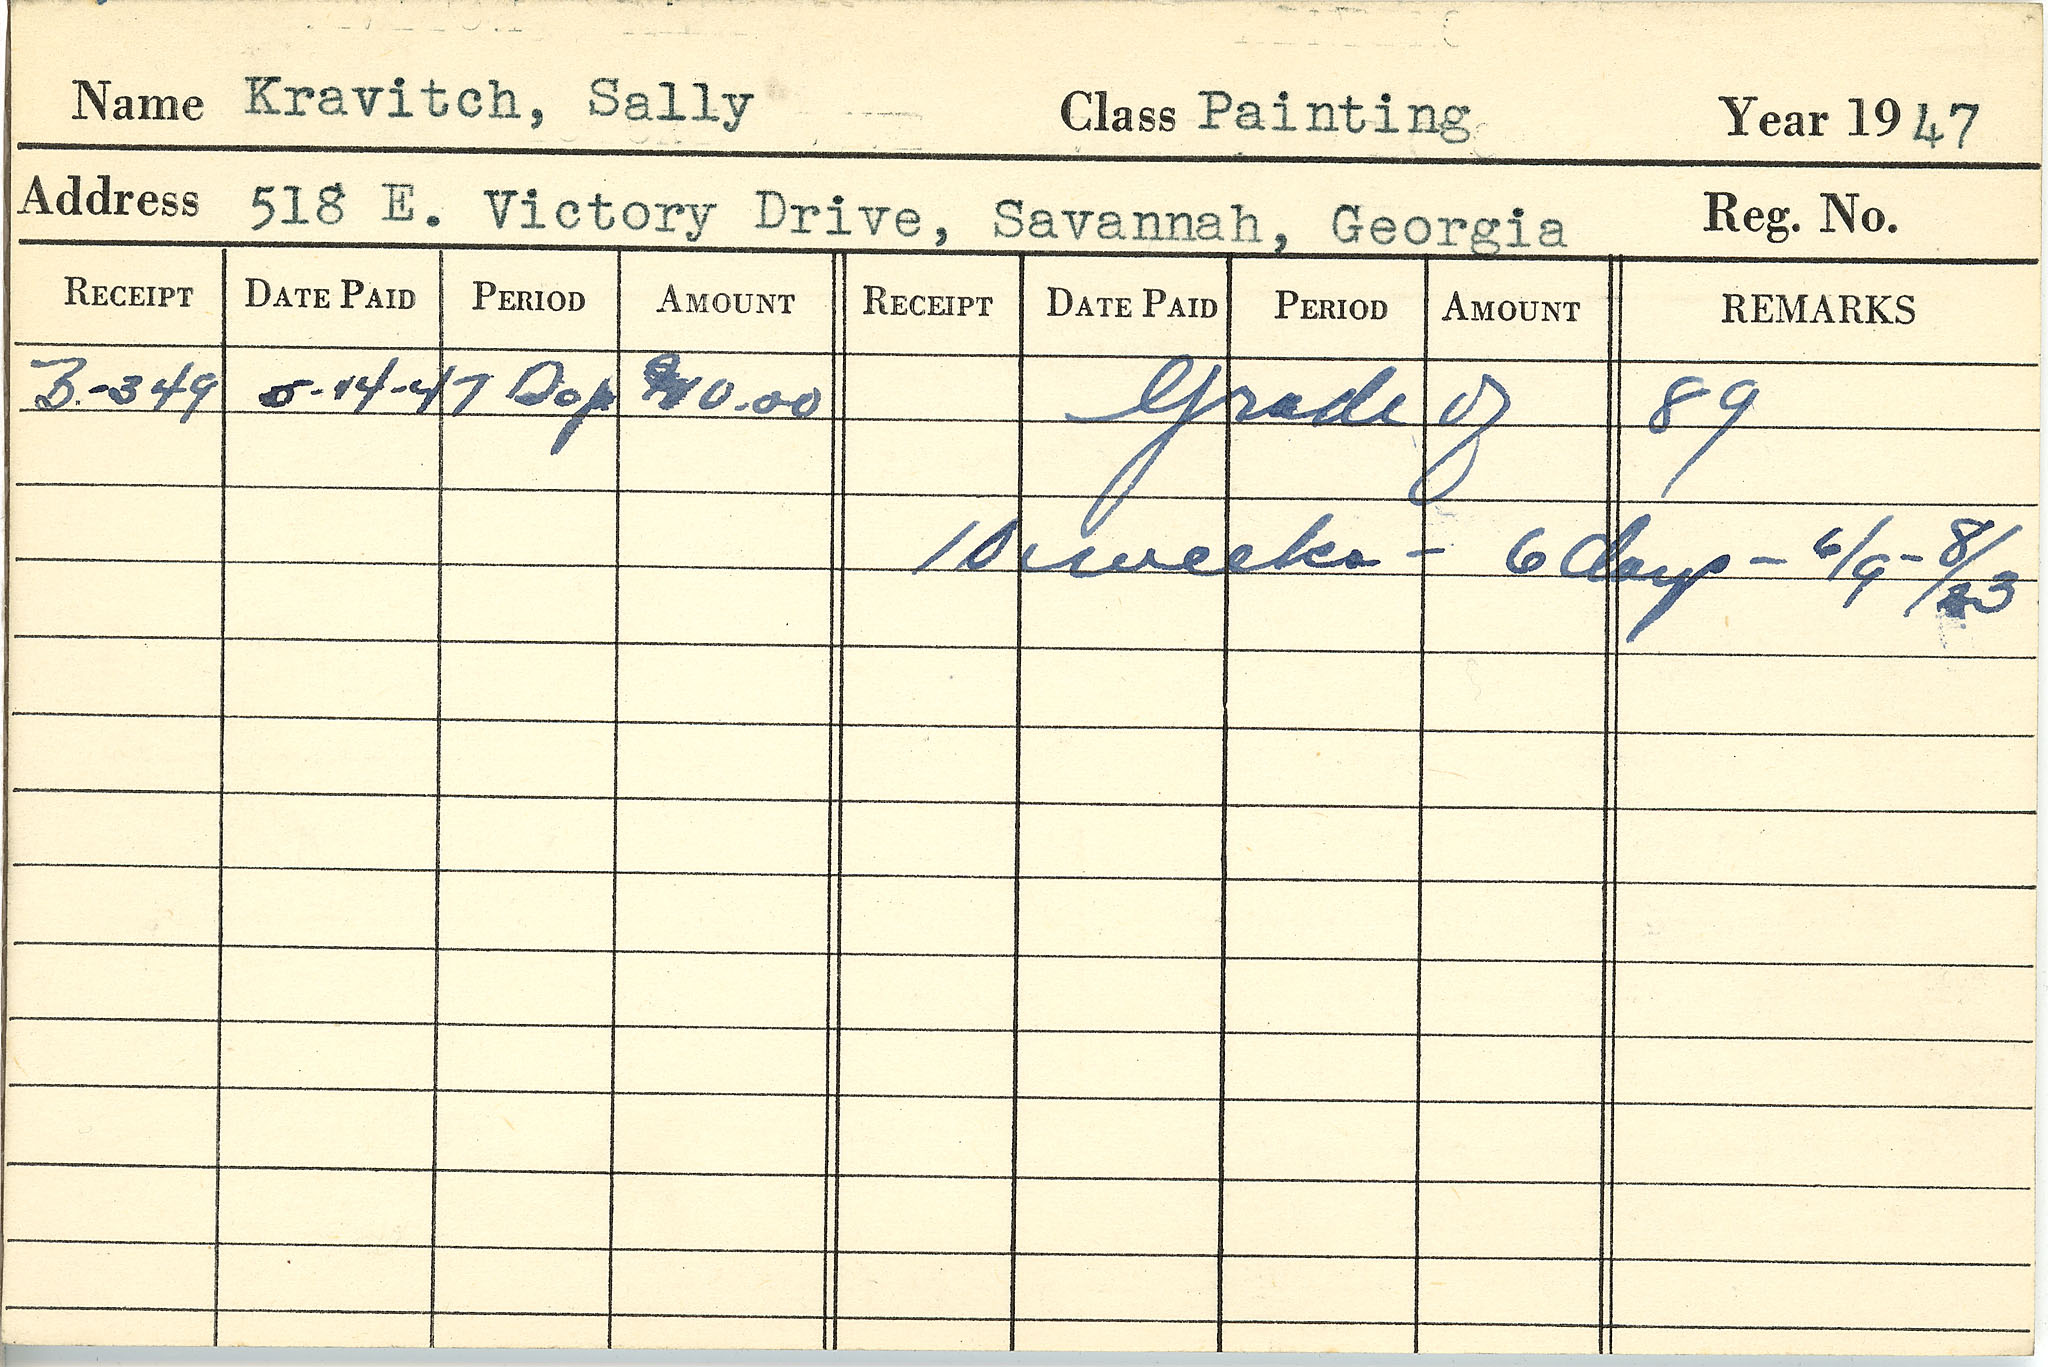 Name Kravitch, Sally Class Painting Year 1947
Address 518 E. Victory Drive, Savannah, Georgia Reg. No.
RECEIPT DATE PAID PERIOD AMOUNT RECEIPT DATE PAID PERIOD AMOUNT REMARKS
B-349 5-14-47 Dep $10.00 Grade of 89
10 weeks - 6 days - 6/9 - 8/23